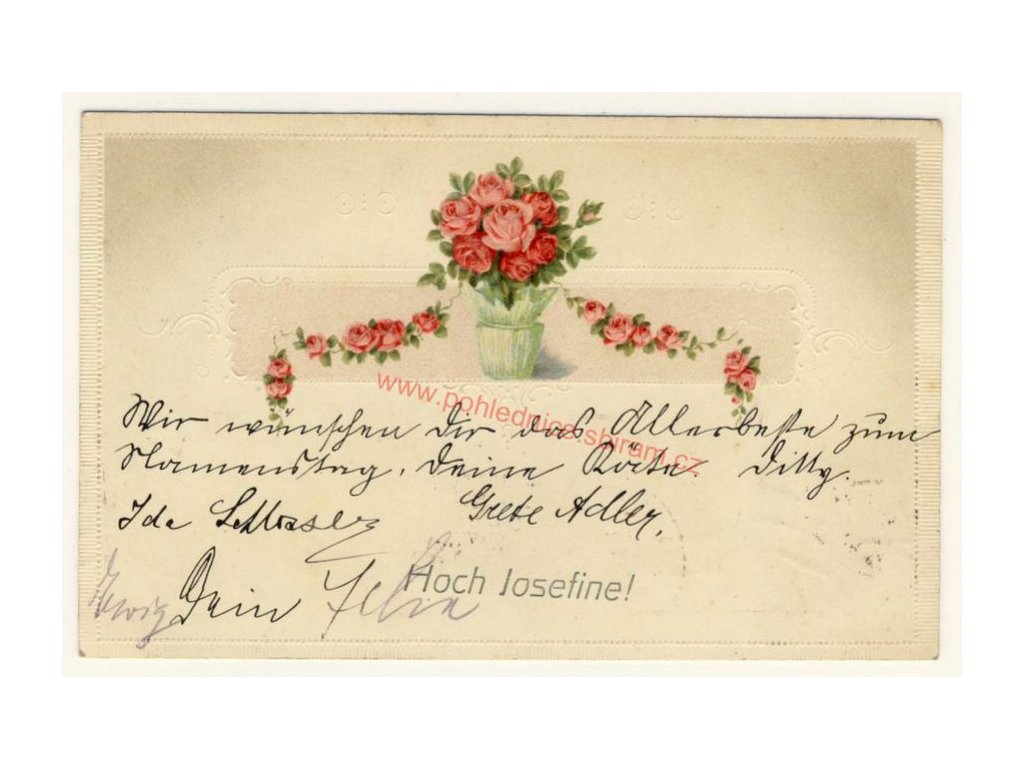 www.pohlednice.sbiram.cz
Wir wünschen Dir das Allerbeste zum
Namenstag. Deine Käta. Ditty.
Ida Grete Adler.
Hoch Josefine!
Dein